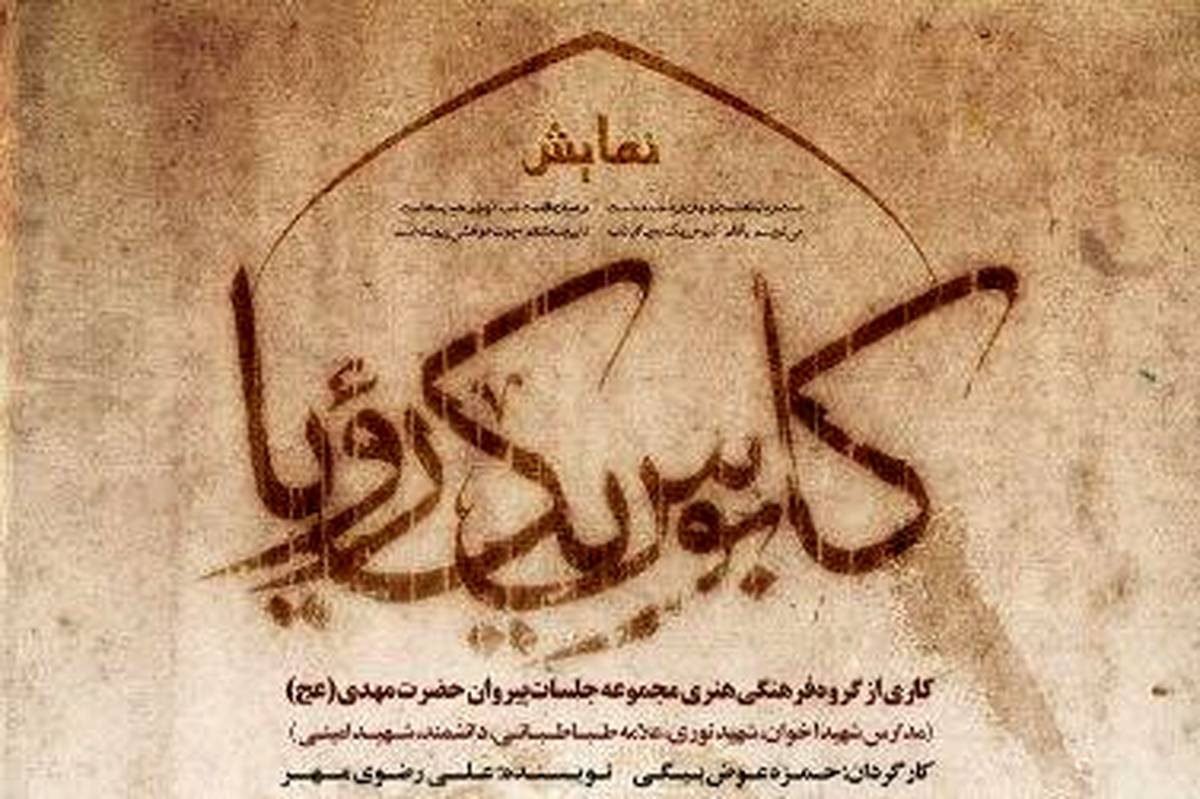 نمایش
کابوس یک رؤیا
کاری از گروه فرهنگی هنری مجموعه جلسات پیروان حضرت مهدی (عج)
(مدارس شهید اخوان، شهید نوری، علامه طباطبائی، دانشمند، شهید امینی)
کارگردان: حمزه عوض بیگی نویسنده: علی رضوی مهر